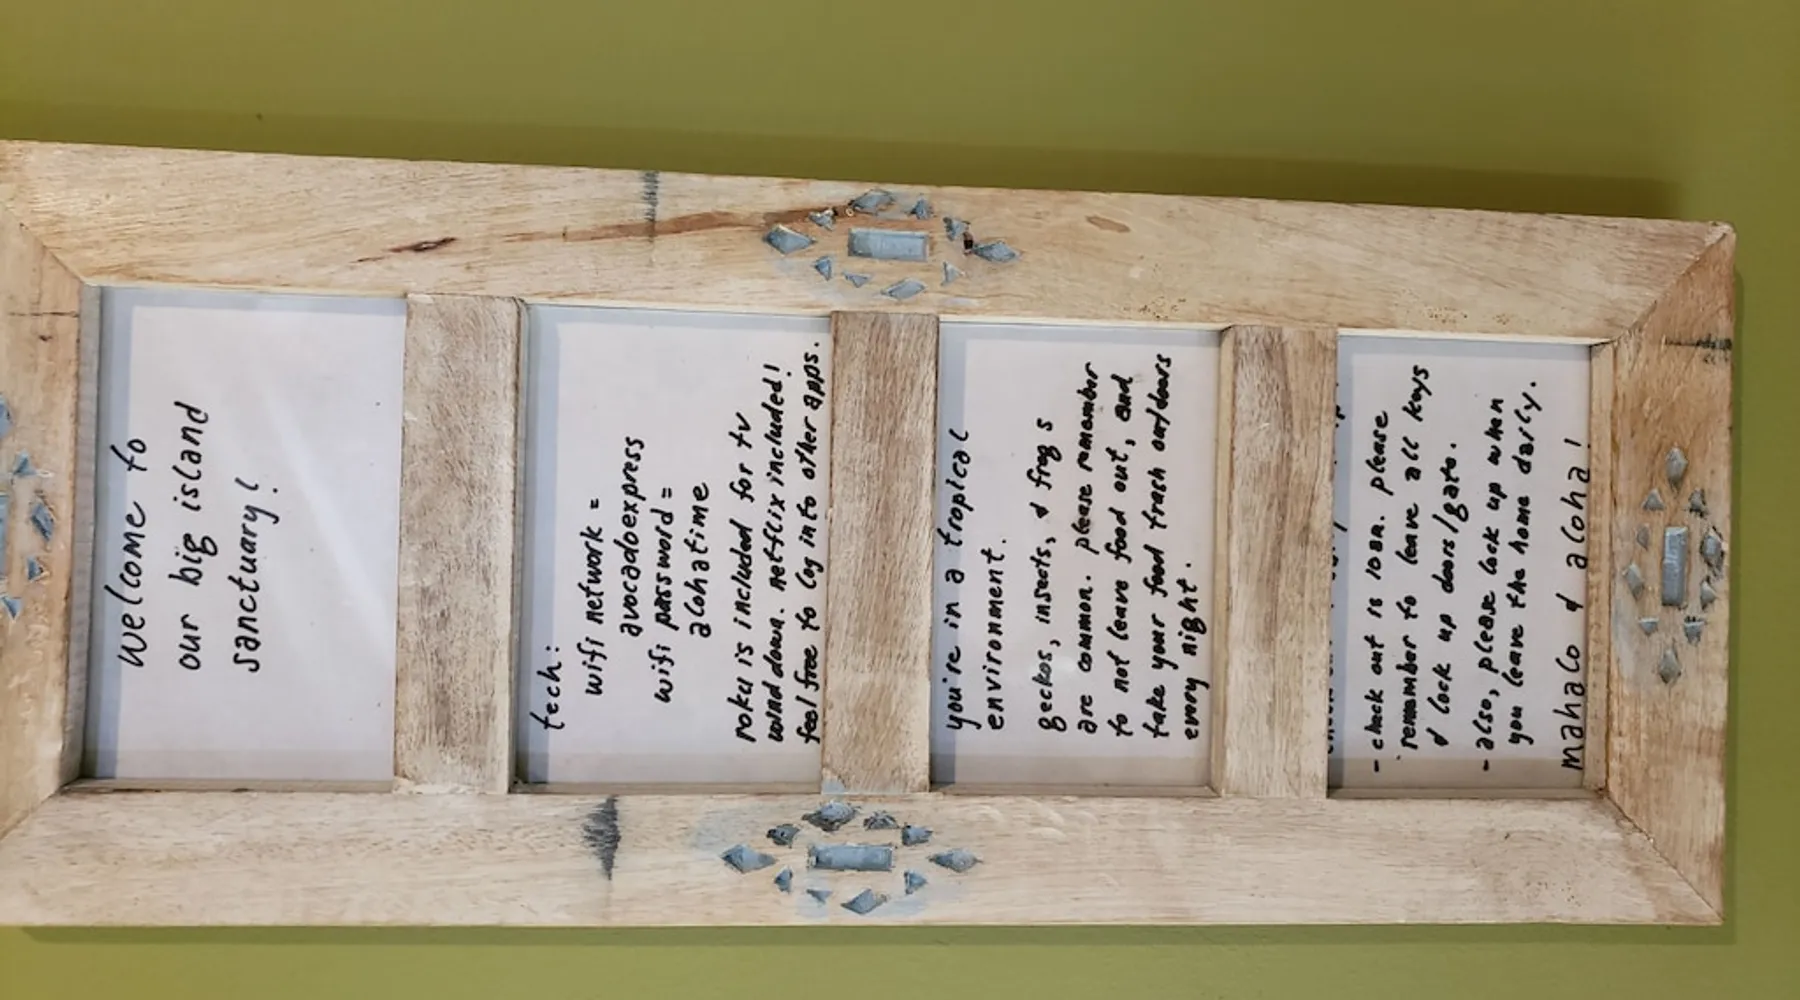 welcome to
our big island
sanctuary!
tech:
wifi network =
avocadoexpress
wifi password =
alohatime
roku is included for tv
wind down. netflix included!
feel free to log into other apps.
you're in a tropical
environment.
geckos, insects, & frogs
are common. please remember
to not leave food out, and
take your food trash outdoors
every night.
- check out is 10am. please
remember to leave all keys
& lock up doors/gate.
- also, please lock up when
you leave the home daily.
mahalo & aloha!